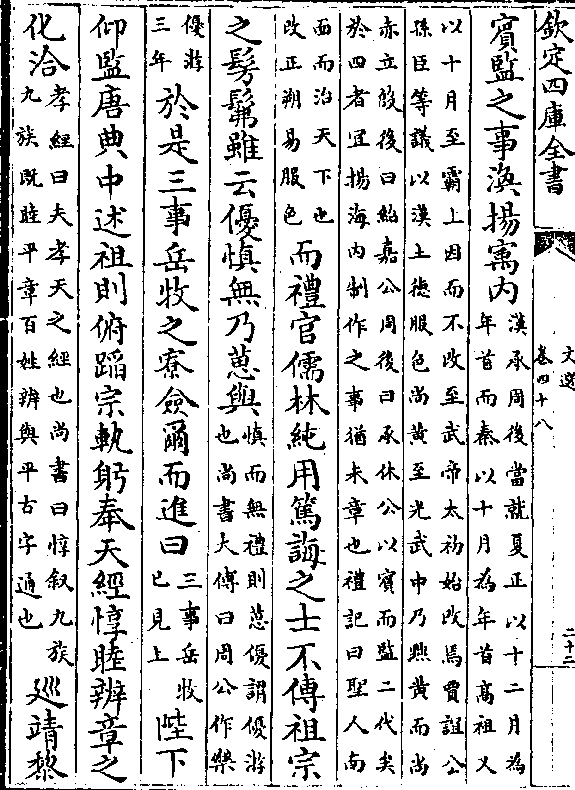 欽定四庫全書
文選
卷四十八
二十二
賓監之事渙揚寓内
漢承周後當就夏正以十二月為
年首而秦以十月為年首高祖又
以十月至霸上因而不改至武帝太初始改焉賈誼公
孫臣等議以漢土德服色尚黄至光武中乃興黄而尚
赤立殷後曰紹嘉公周後曰承休公以賓而監二代矣
於四者宜揚海内制作之事猶未章也禮記曰聖人南
面而治天下也
改正朔易服色
而禮官儒林純用篤誨之士不傳祖宗
之髣髴雖云優慎無乃葸與
慎而無禮則葸優謂優游
也尚書大傅曰周公作樂
優游
三年
於是三事岳牧之寮僉爾而進曰
三事岳牧
已見上
陛下
仰監唐典中述祖則俯蹈宗軌躬奉天經惇睦辨章之
化洽
孝經曰夫孝天之經也尚書曰惇叙九族
九族既睦平章百姓辨與平古字通也
巡靖黎